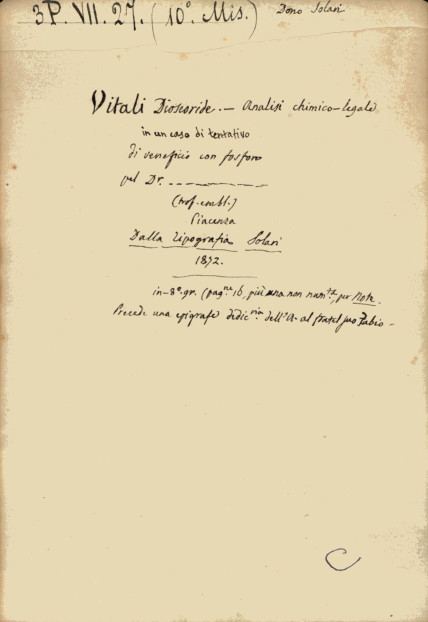 3P. VII. 27. (10º. Mis.) Dono Solari
Vitali Dioscoride. — Analisi chimico-legale
in un caso di tentativo
di veneficio con fosforo
pel Dr. _ _ _ _ _ _ _ _
Piacenza
Dalla Tipografia Solari
1872.
in-8º. gr. (pagne. 16, più una non numta. per Note.
Precede una epigrafe dedicria. dell'A. al fratel suo Fabio -